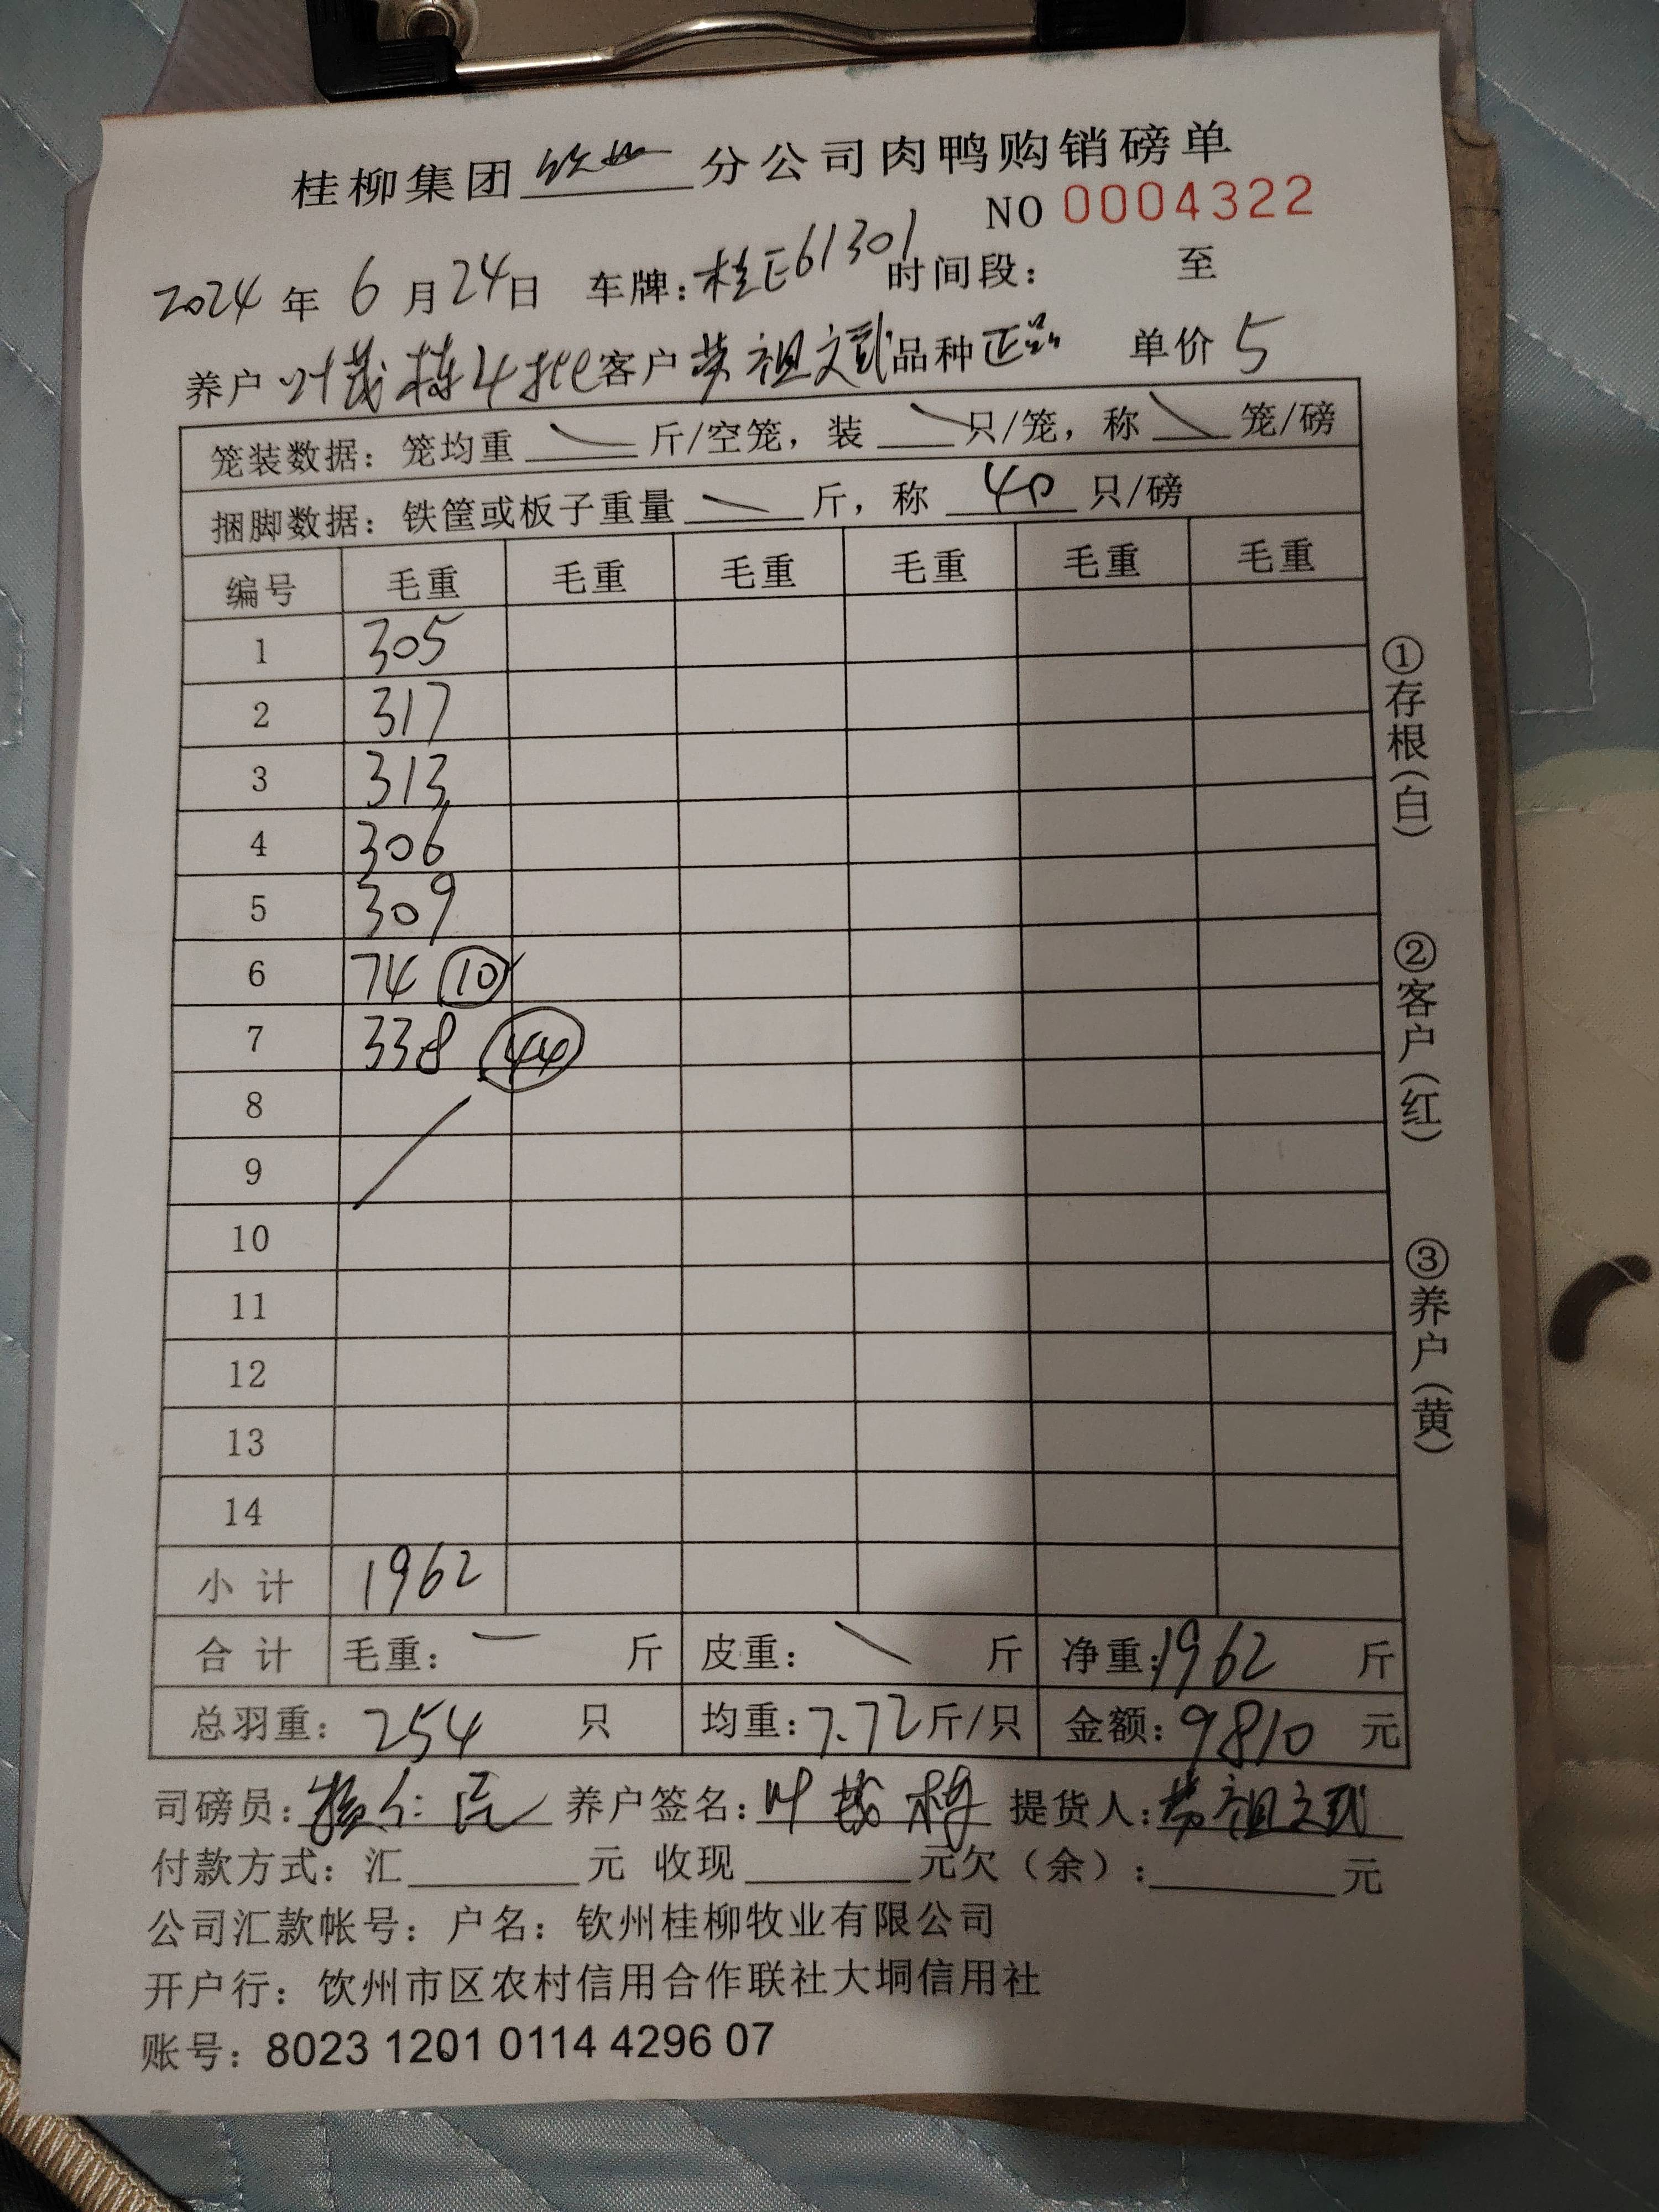 桂柳集团 钦州 分公司肉鸭购销磅单
NO 0004322
2024 年 6 月 24 日 车牌：桂E61301 时间段： 至
养户 叶茂栋4批 客户 黄祖文武 品种 正品 单价 5
笼装数据：笼均重 斤/空笼，装 只/笼，称 笼/磅
捆脚数据：铁筐或板子重量 斤，称 40 只/磅
编号 毛重 毛重 毛重 毛重 毛重 毛重
1 305
2 317
3 313
4 306
5 309
6 74 10
7 338 44
8
9
10
11
12
13
14
小 计 1962
合 计 毛重： 斤 皮重： 斤 净重：1962 斤
总羽重：254 只 均重：7.72 斤/只 金额：9810 元
司磅员： 养户签名：叶茂栋 提货人：黄祖文武
付款方式：汇 元 收现 元欠（余）： 元
公司汇款帐号：户名：钦州桂柳牧业有限公司
开户行：饮州市区农村信用合作联社大垌信用社
账号：8023 1201 0114 4296 07
①存根（白）
②客户（红）
③养户（黄）